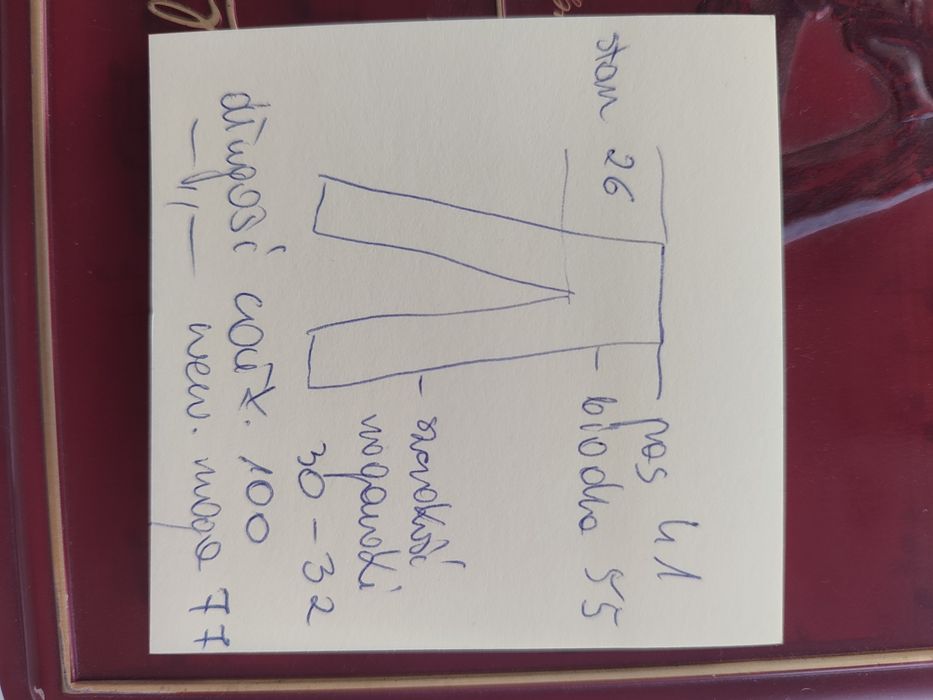 pas 41
stan 26
biodra 55
szerokość
nogawki
30 - 32
długość całk. 100
— " — wew. noga 77